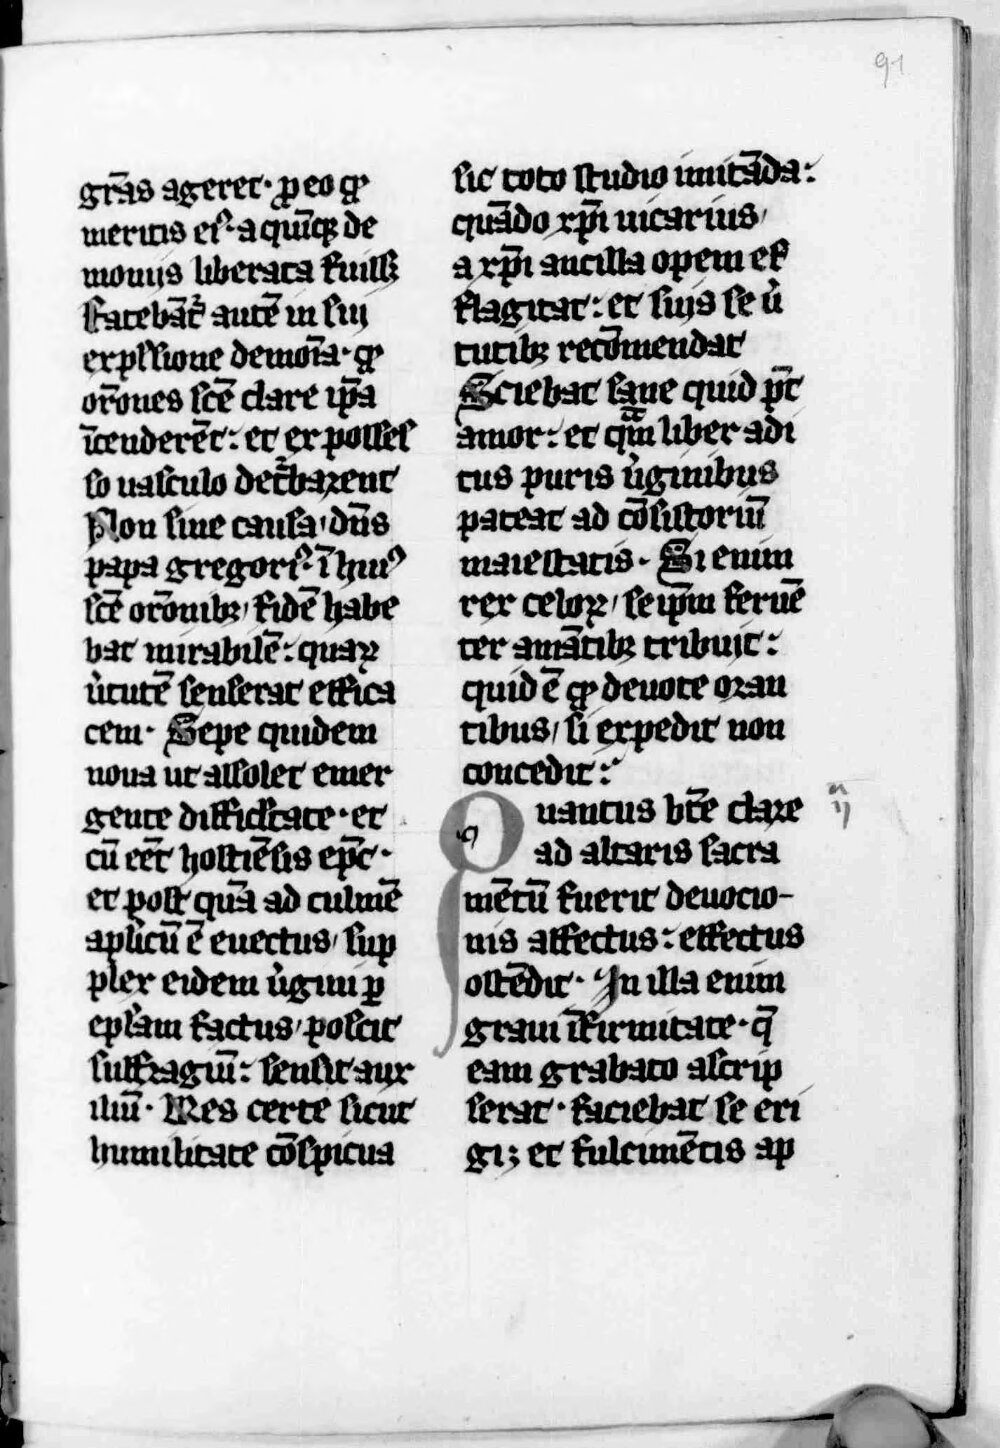 91
gr̃as ageret· ꝓ eo qꝫ
meritis eiꝰ· a quĩqꝫ de
monijs liberata fuiſſꝫ
Fatebãt᷑ autẽ in ſui
expl̃ſione demoĩa· qꝫ
or̃ones ſcẽ clare ip̃a
ĩcenderẽt: et ex poſſeſ
ſo uaſculo det᷑barent
Non ſine cauſa/ dñs
papa gregoriꝰ· ĩ huiꝰ
ſcẽ or̃onibꝫ/ fidẽ habe
bat mirabilẽ: quaꝝ
ũtutẽ ſenſerat effica
cem· Sepe quidem
noua ut aſſolet emer
gente difficl̃tate· et
cũ eẽt hoſtiẽſis ep̃c·
et poſt quã ad culmẽ
apl̃icũ ẽ euectus/ ſup
plex eidem ũgini ꝑ
epl̃am factus/ poſcit
ſuffragiũ: ſenſit aux
iliũ· Res certe ſicut
humilitate cõſpicua
ſic toto ſtudio imitãda:
quãdo xp̃i uicarius/
a xp̃i ancilla opem ef
flagitat: et ſuis ſe ũ
tutibꝫ recõmendat
Sciebat ſane quid põt
amor: et qm̃ liber adi
tus puris ũginibus
pateat ad cõſiſtoriũ
maieſtatis· Si enim
rex celoꝝ/ ſeip̃m feruẽ
ter amãtibꝫ tribuit:
quid ẽ qꝫ deuote oran
tibus/ ſi expedit non
concedit:
Quantus bt̃e clare
ad altaris ſacra
mẽtũ fuerit deuocio-
nis affectus: effectus
oſtẽdit· In illa enim
graui ĩfirmitate· q̃
eam grabato aſcrip
ſerat· faciebat ſe eri
gi; et fulcimẽtis ap